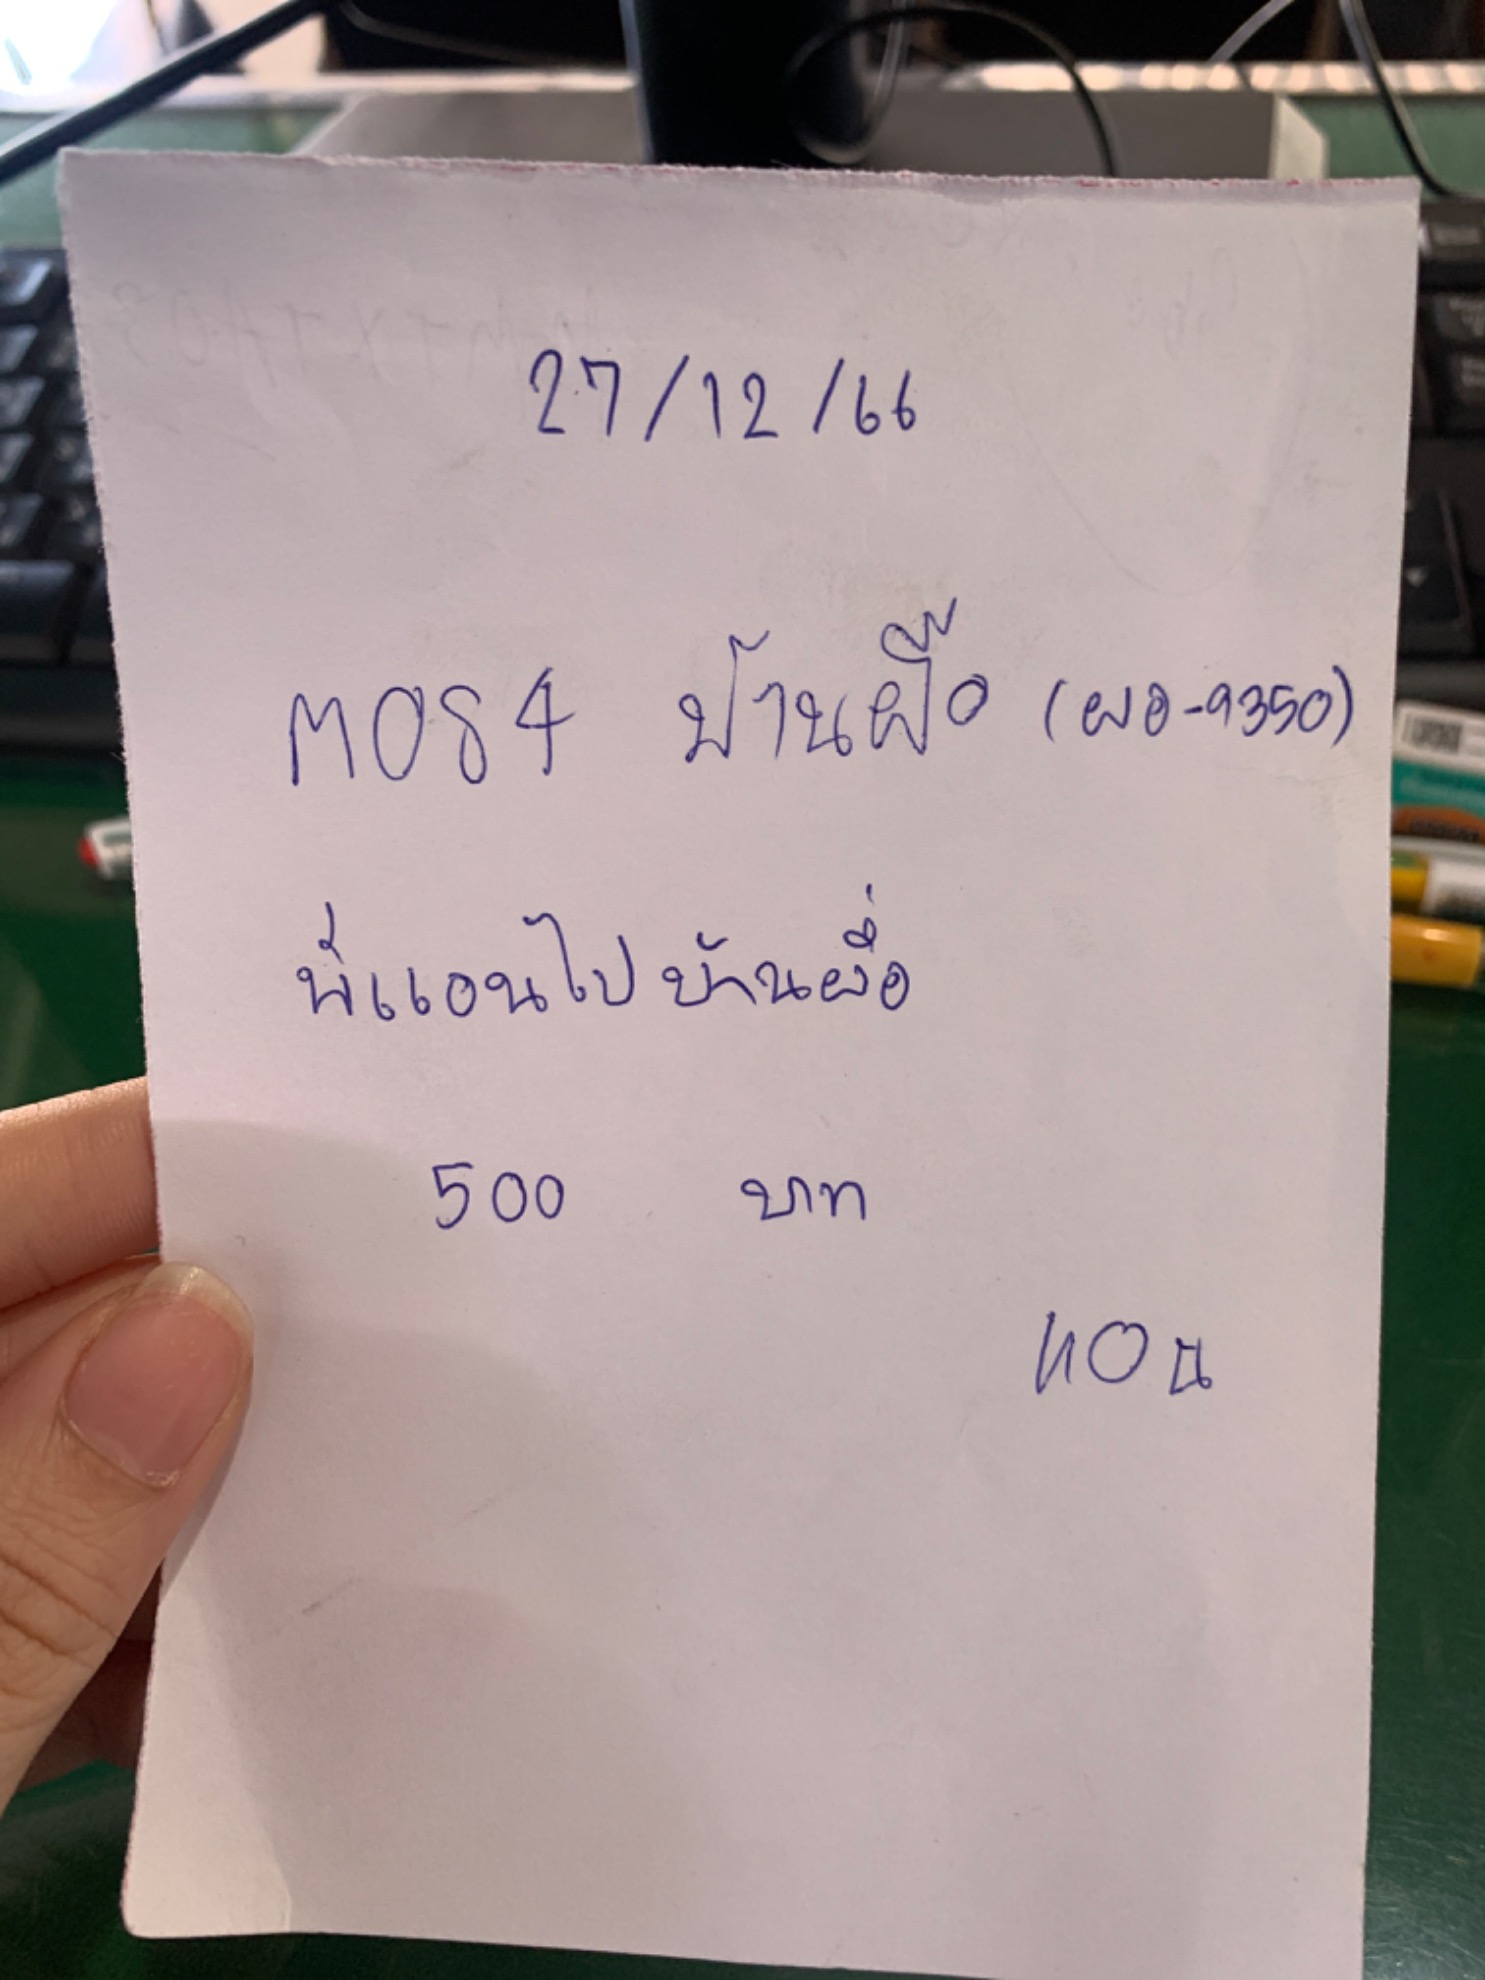 27/12/66
M084 บ้านผือ (ผอ-9350)
พี่แอนไปบ้านผื่อ
500 บาท